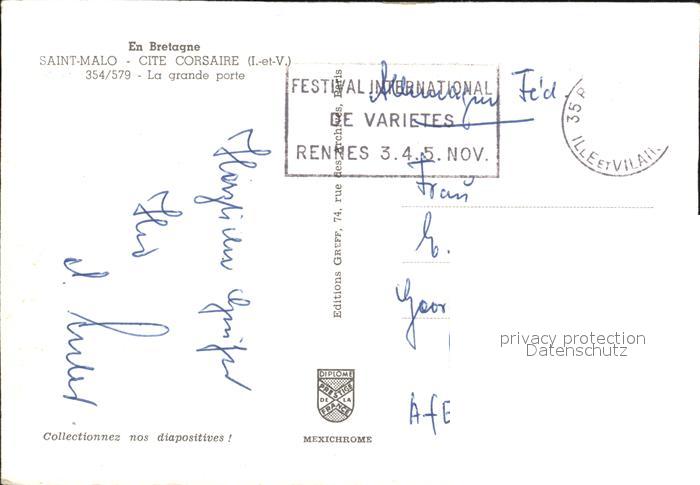 En Bretagne
SAINT-MALO - CITE CORSAIRE (I.-et-V.)
354/579 - La grande porte
FESTIVAL INTERNATIONAL
DE VARIETES
RENNES 3.4.5. NOV.
35
ILLE ET VILAI
Allemagne Féd.
Frau
E.
Geor
Herzliche Grüße
Ihr
Editions GREFF, 74, rue des Archives, Paris
privacy protection
Datenschutz
DIPLOME
PRESTIGE
DE LA
FRANCE
MEXICHROME
Collectionnez nos diapositives !